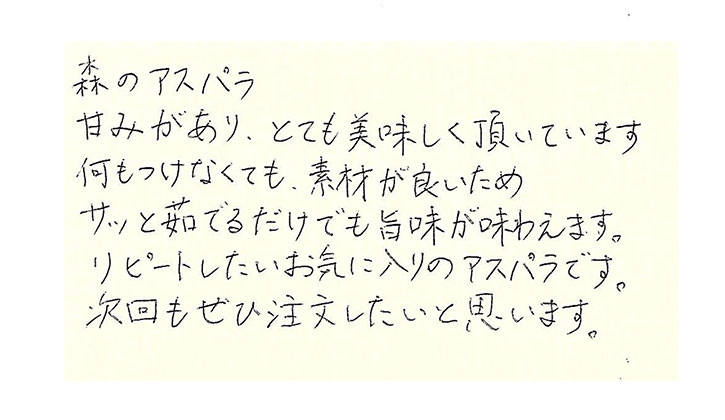 森のアスパラ
甘みがあり、とても美味しく頂いています
何もつけなくても、素材が良いため
サッと茹でるだけでも旨味が味わえます。
リピートしたいお気に入りのアスパラです。
次回もぜひ注文したいと思います。